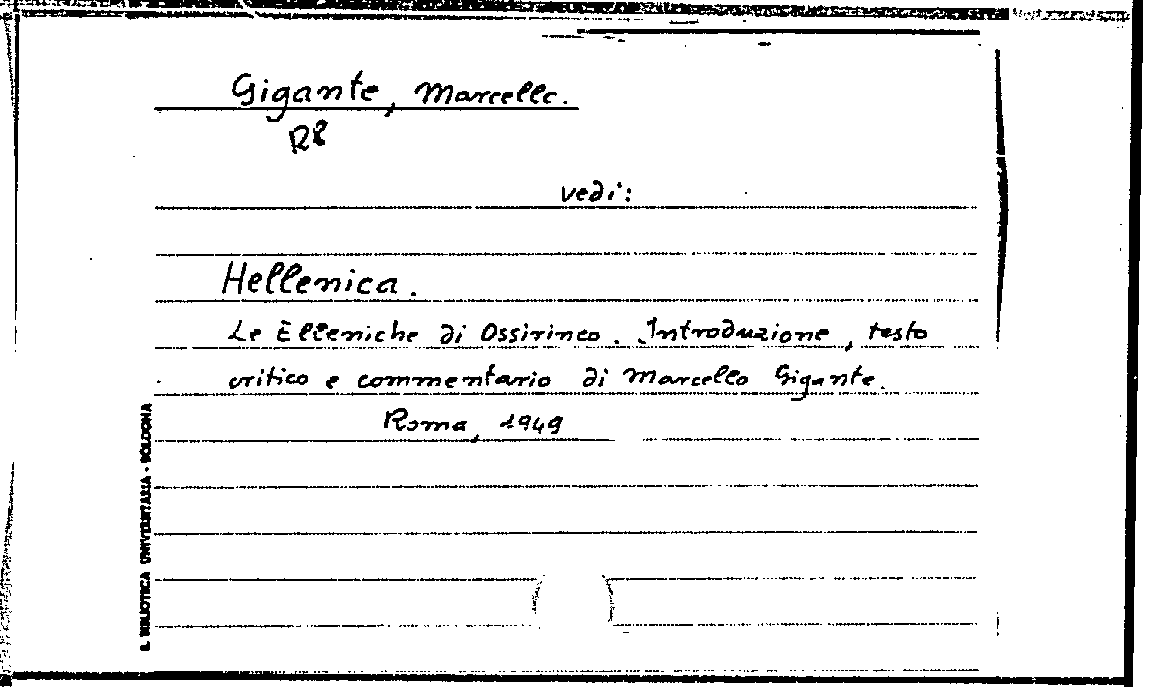 Gigante, Marcello.
R8
vedi:
Hellenica.
Le Elleniche di Ossirinco. Introduzione, testo
critico e commentario di Marcello Gigante.
Roma, 1949
R. BIBLIOTECA UNIVERSITARIA - BOLOGNA